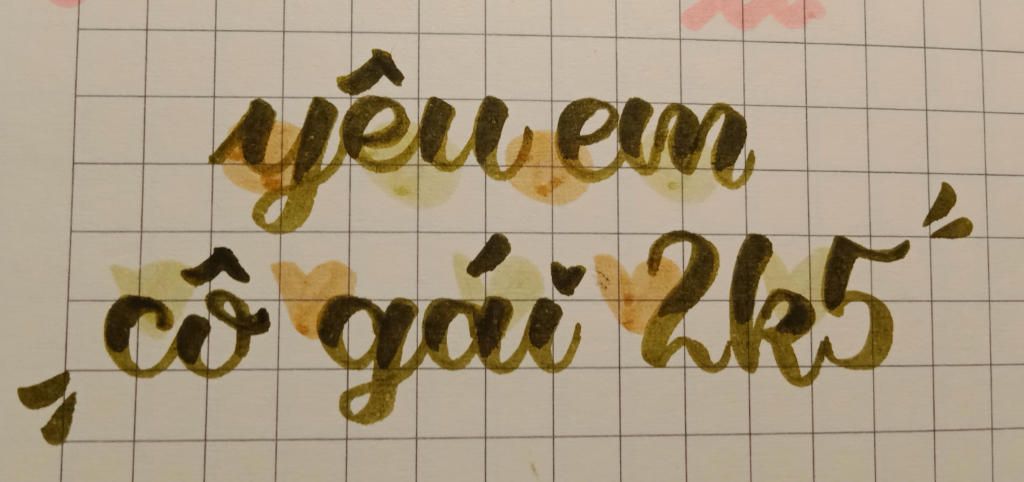 yêu em
cô gái 2k5